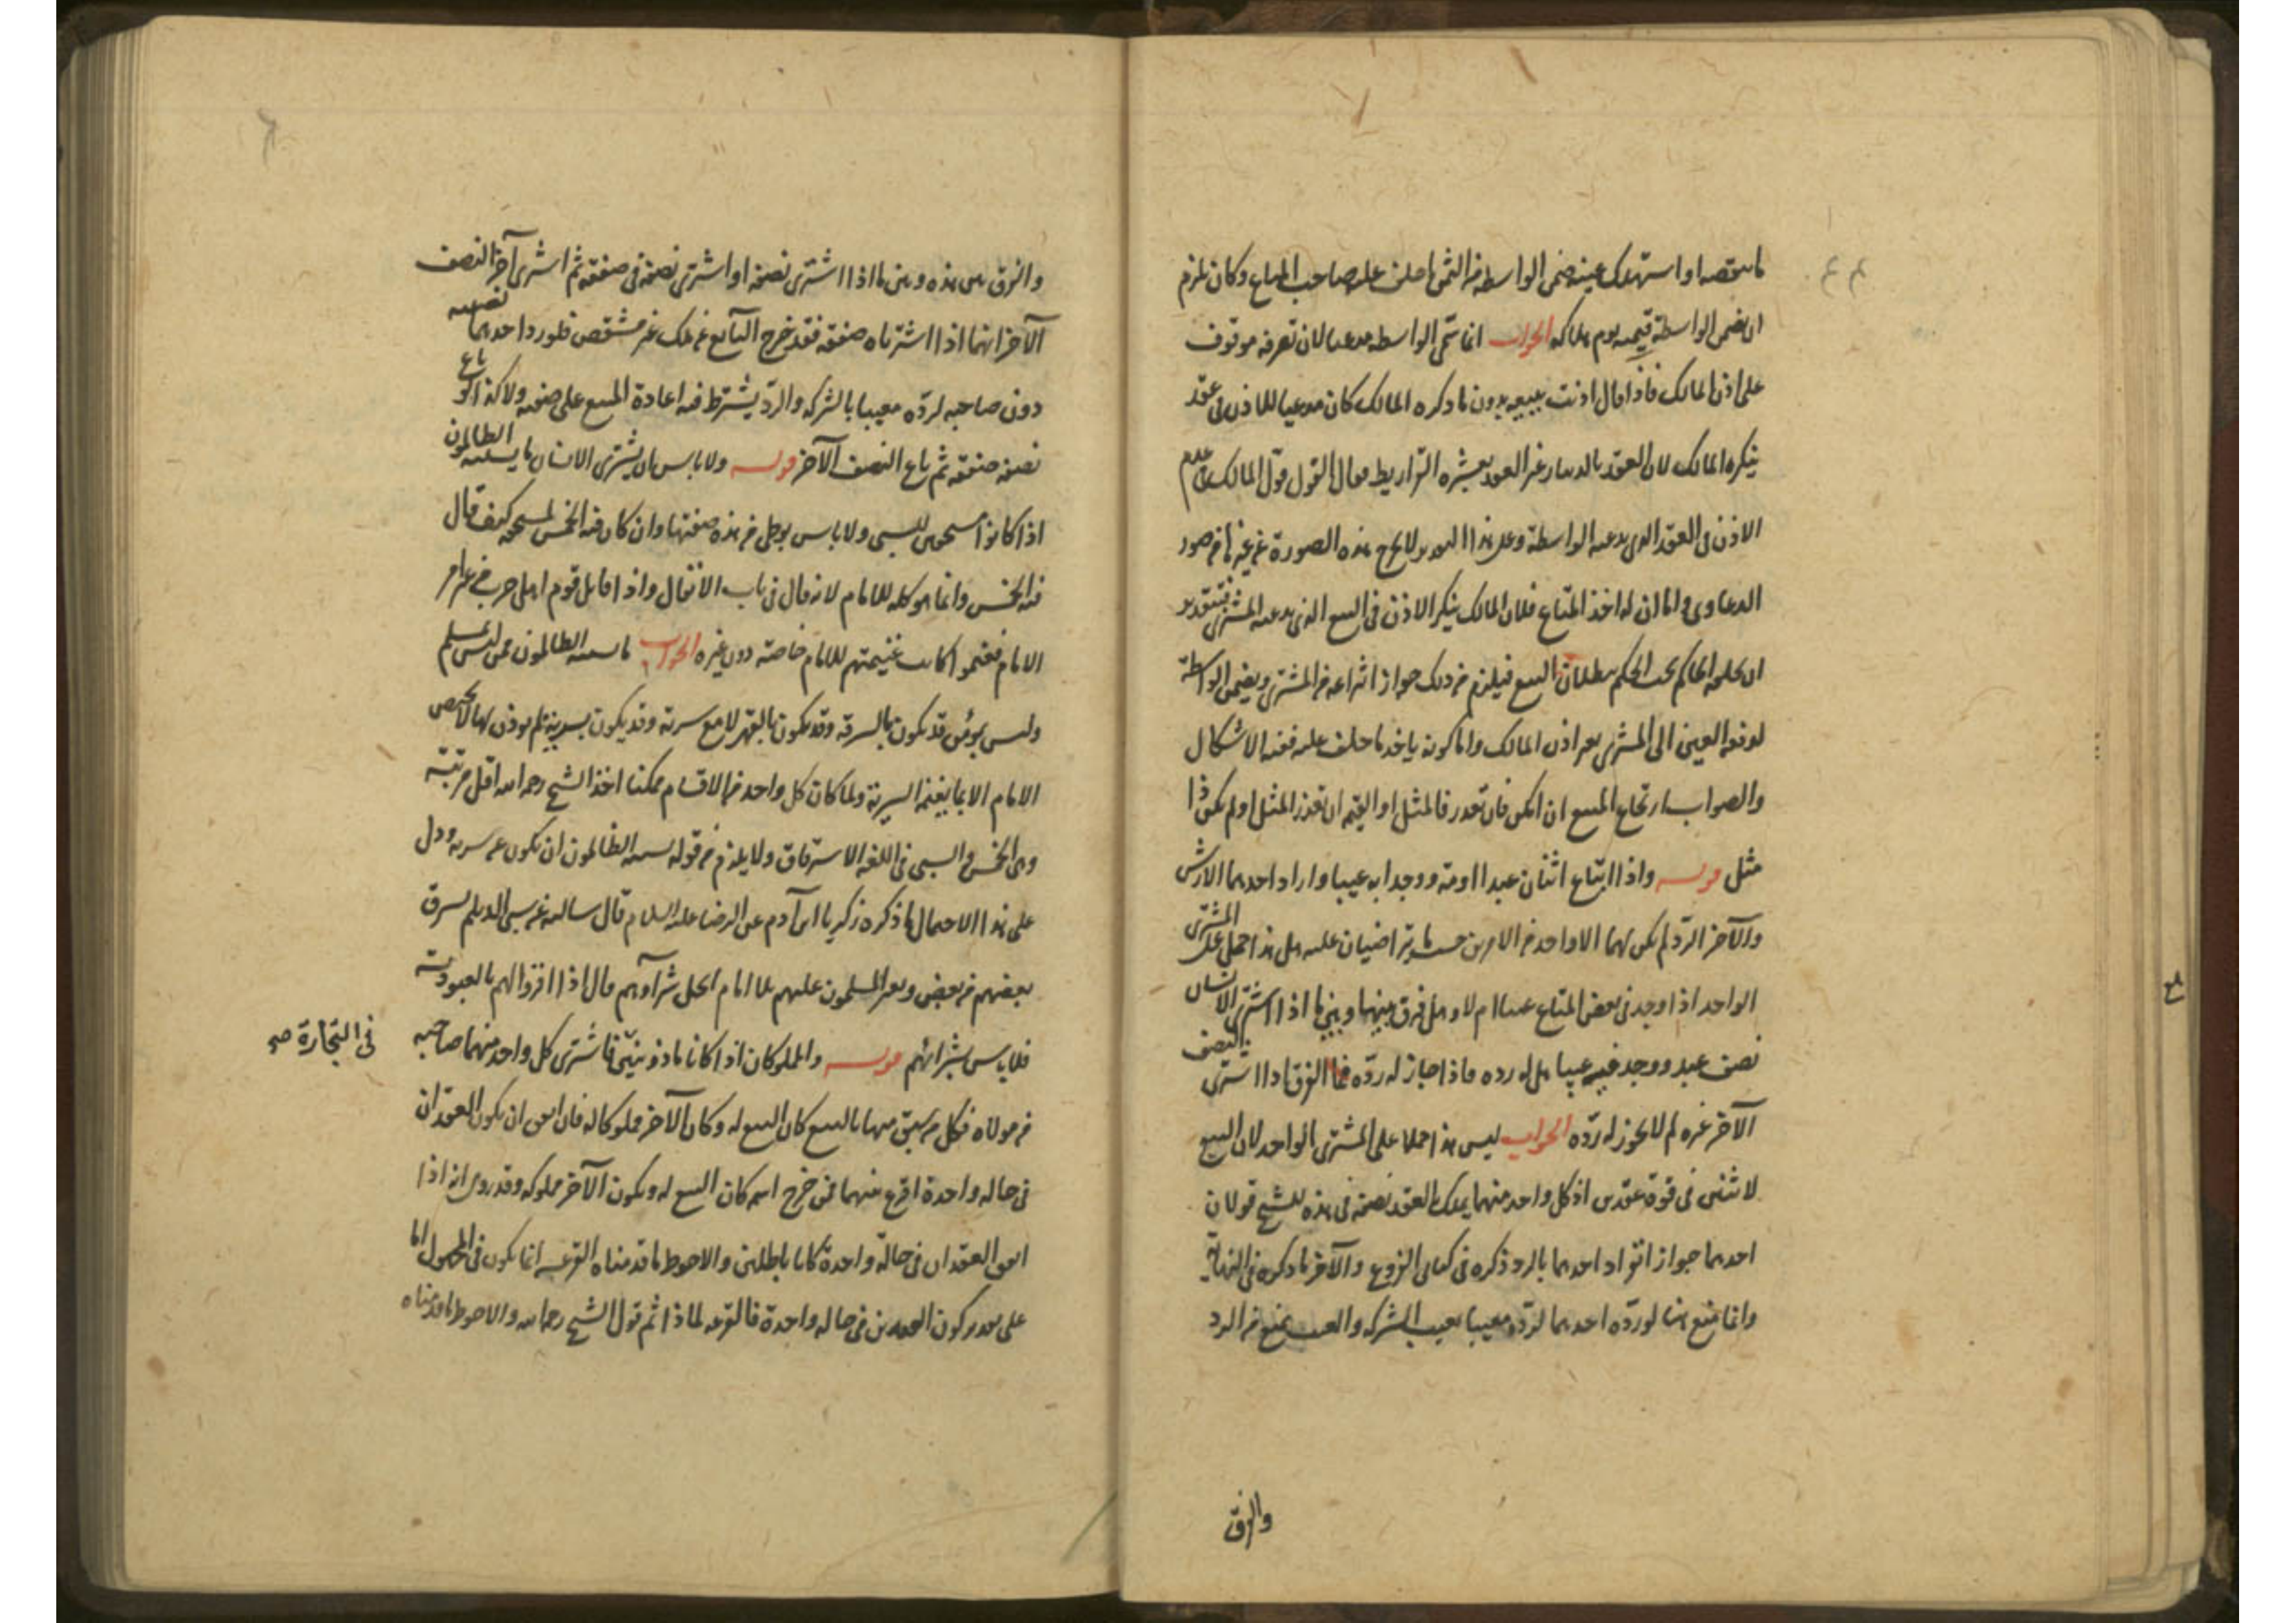 ما ينقصه او استهلك عينه ضمن الواسطة من الثمن ما حلف عليه صاحب المتاع وكان يلزم
ان يضمن الواسطة قيمته يوم هلاكه الجواب انما سمى الواسطه مدعيا لان تصرفه موقوف
على اذن المالك فاذا قال اذنت ببيعه بدون ما ذكره المالك كان مدعيا للاذن في عقد
ينكره المالك لان العقد بالدينار غير العقد بعشره القراريط فقال القول قول المالك في عدم
الاذن في العقد الذي يدعيه الواسطة وعلى هذا التقدير لا يخرج هذه الصورة عن غيرها من صور
الدعاوى واما ان له اخذ المتاع فلان المالك ينكر الاذن في البيع الذي يدعيه المشتري فبتقدير
ان يحلفه الحاكم يجب الحكم ببطلان البيع فيلزم من ذلك جواز انتزاعه من المشتري ويضمن الواسطة
لدفعه العين الى المشتري بغير اذن المالك واما كونه ياخذ ما حلف عليه ففيه الاشكال
والصواب ارتجاع المبيع ان امكن فان تعذر فالمثل او القيمه ان تعذر المثل او لم يكن ذا
مثل قوله واذا ابتاع اثنان عبدا او امة ووجدا به عيبا واراد احدهما الارش
والآخر الرد لم يكن لهما الا واحد من الامرين حسب ما يتراضيان عليه هل هذا احمل على المشترى
الواحد اذا وجد في بعض المتاع عيبا ام لا وهل فرق بينهما وبين ما اذا اشترى الانسان
نصف عبد ووجد فيه عيبا هل له رده فاذا جاز له رده فما الفرق اذا اشترى النصف
الآخر غيره لم لا يجوز له رده الجواب ليس هذا حملا على المشترى الواحد لان البيع
لاثنين في قوة عقدين اذ كل واحد منهما يملك بالعقد نصفه في هذه للشيخ قولان
احدهما جواز انفراد احدهما بالرد ذكره في كتابي الفروع والآخر ما ذكره في النهاية
وانما منع هنا لو رده احدهما لرده معيبا بعيب الشركه والعيب يمنع من الرد
والفرق
والفرق بين هذه وبين ما اذا اشترى نصفه او اشترى نصفه في صفقه ثم اشترى آخر النصف
الآخر انهما اذا اشترياه صفقه فقد خرج البايع عن ملك غير مشقص فلو رد احدهما نصيبه
دون صاحبه لرده معيبا بالشركه والرد يشترط فيه اعادة المبيع على صفته ولا كذا لو باع
نصفه صفقه ثم باع النصف الآخر قوله ولا باس ان يشترى الانسان ما يسبيه الظالمون
اذا كانوا مستحقين للسبي ولا باس بوطى من هذه صفتها وان كان فيه الخمس لمستحقه كيف قال
فيه الخمس وانما هو كله للامام لانه قال في باب الانفال واذا قاتل قوم اهل حرب من غير امر
الامام فغنموا كانت غنيمتهم للامام خاصة دون غيره الجواب ما يسبيه الظالمون ممن ليس بمسلم
وليس بمؤمن قد يكون بالسرقه وقد يكون بالقهر لا مع سرية وقد يكون بسرية لم يوذن لها لا يختص
الامام الا بما يغنمه السرية ولما كان كل واحد من الاقسام ممكنا اخذ الشيخ رحمه الله اقل مرتبته
وهي الخمس والسبي في اللغه الاسترقاق ولا يلزم من قوله يسبيه الظالمون ان يكون عن سريه ودل
على هذا الاحتمال ما ذكره زكريا ابن آدم عن الرضا عليه السلام قال سالته عن سبي الديلم يسرق
بعضهم من بعض ويغير المسلمون عليهم بلا امام ايحل شرآؤهم قال اذا اقروا لهم بالعبودية
فلا باس بشرائهم قوله والمملوكان اذا كانا ماذونين فاشترى كل واحد منهما صاحبه
في التجارة صح
من مولاه فكل من سبق منهما بالبيع كان البيع له وكان الآخر مملوكا له فان اتفق ان يكون العقدان
في حاله واحدة اقرع بينهما فمن خرج اسمه كان البيع له ويكون الآخر مملوكه وقد روى انه اذا
اتفق العقدان في حالة واحدة كانا باطلين والاحوط ما قدمناه القرعه انما يكون في المجهول اما
على تقدير كون العقدين في حاله واحدة فالقرعه لماذا ثم قول الشيخ رحمه الله والاحوط ما قدمناه